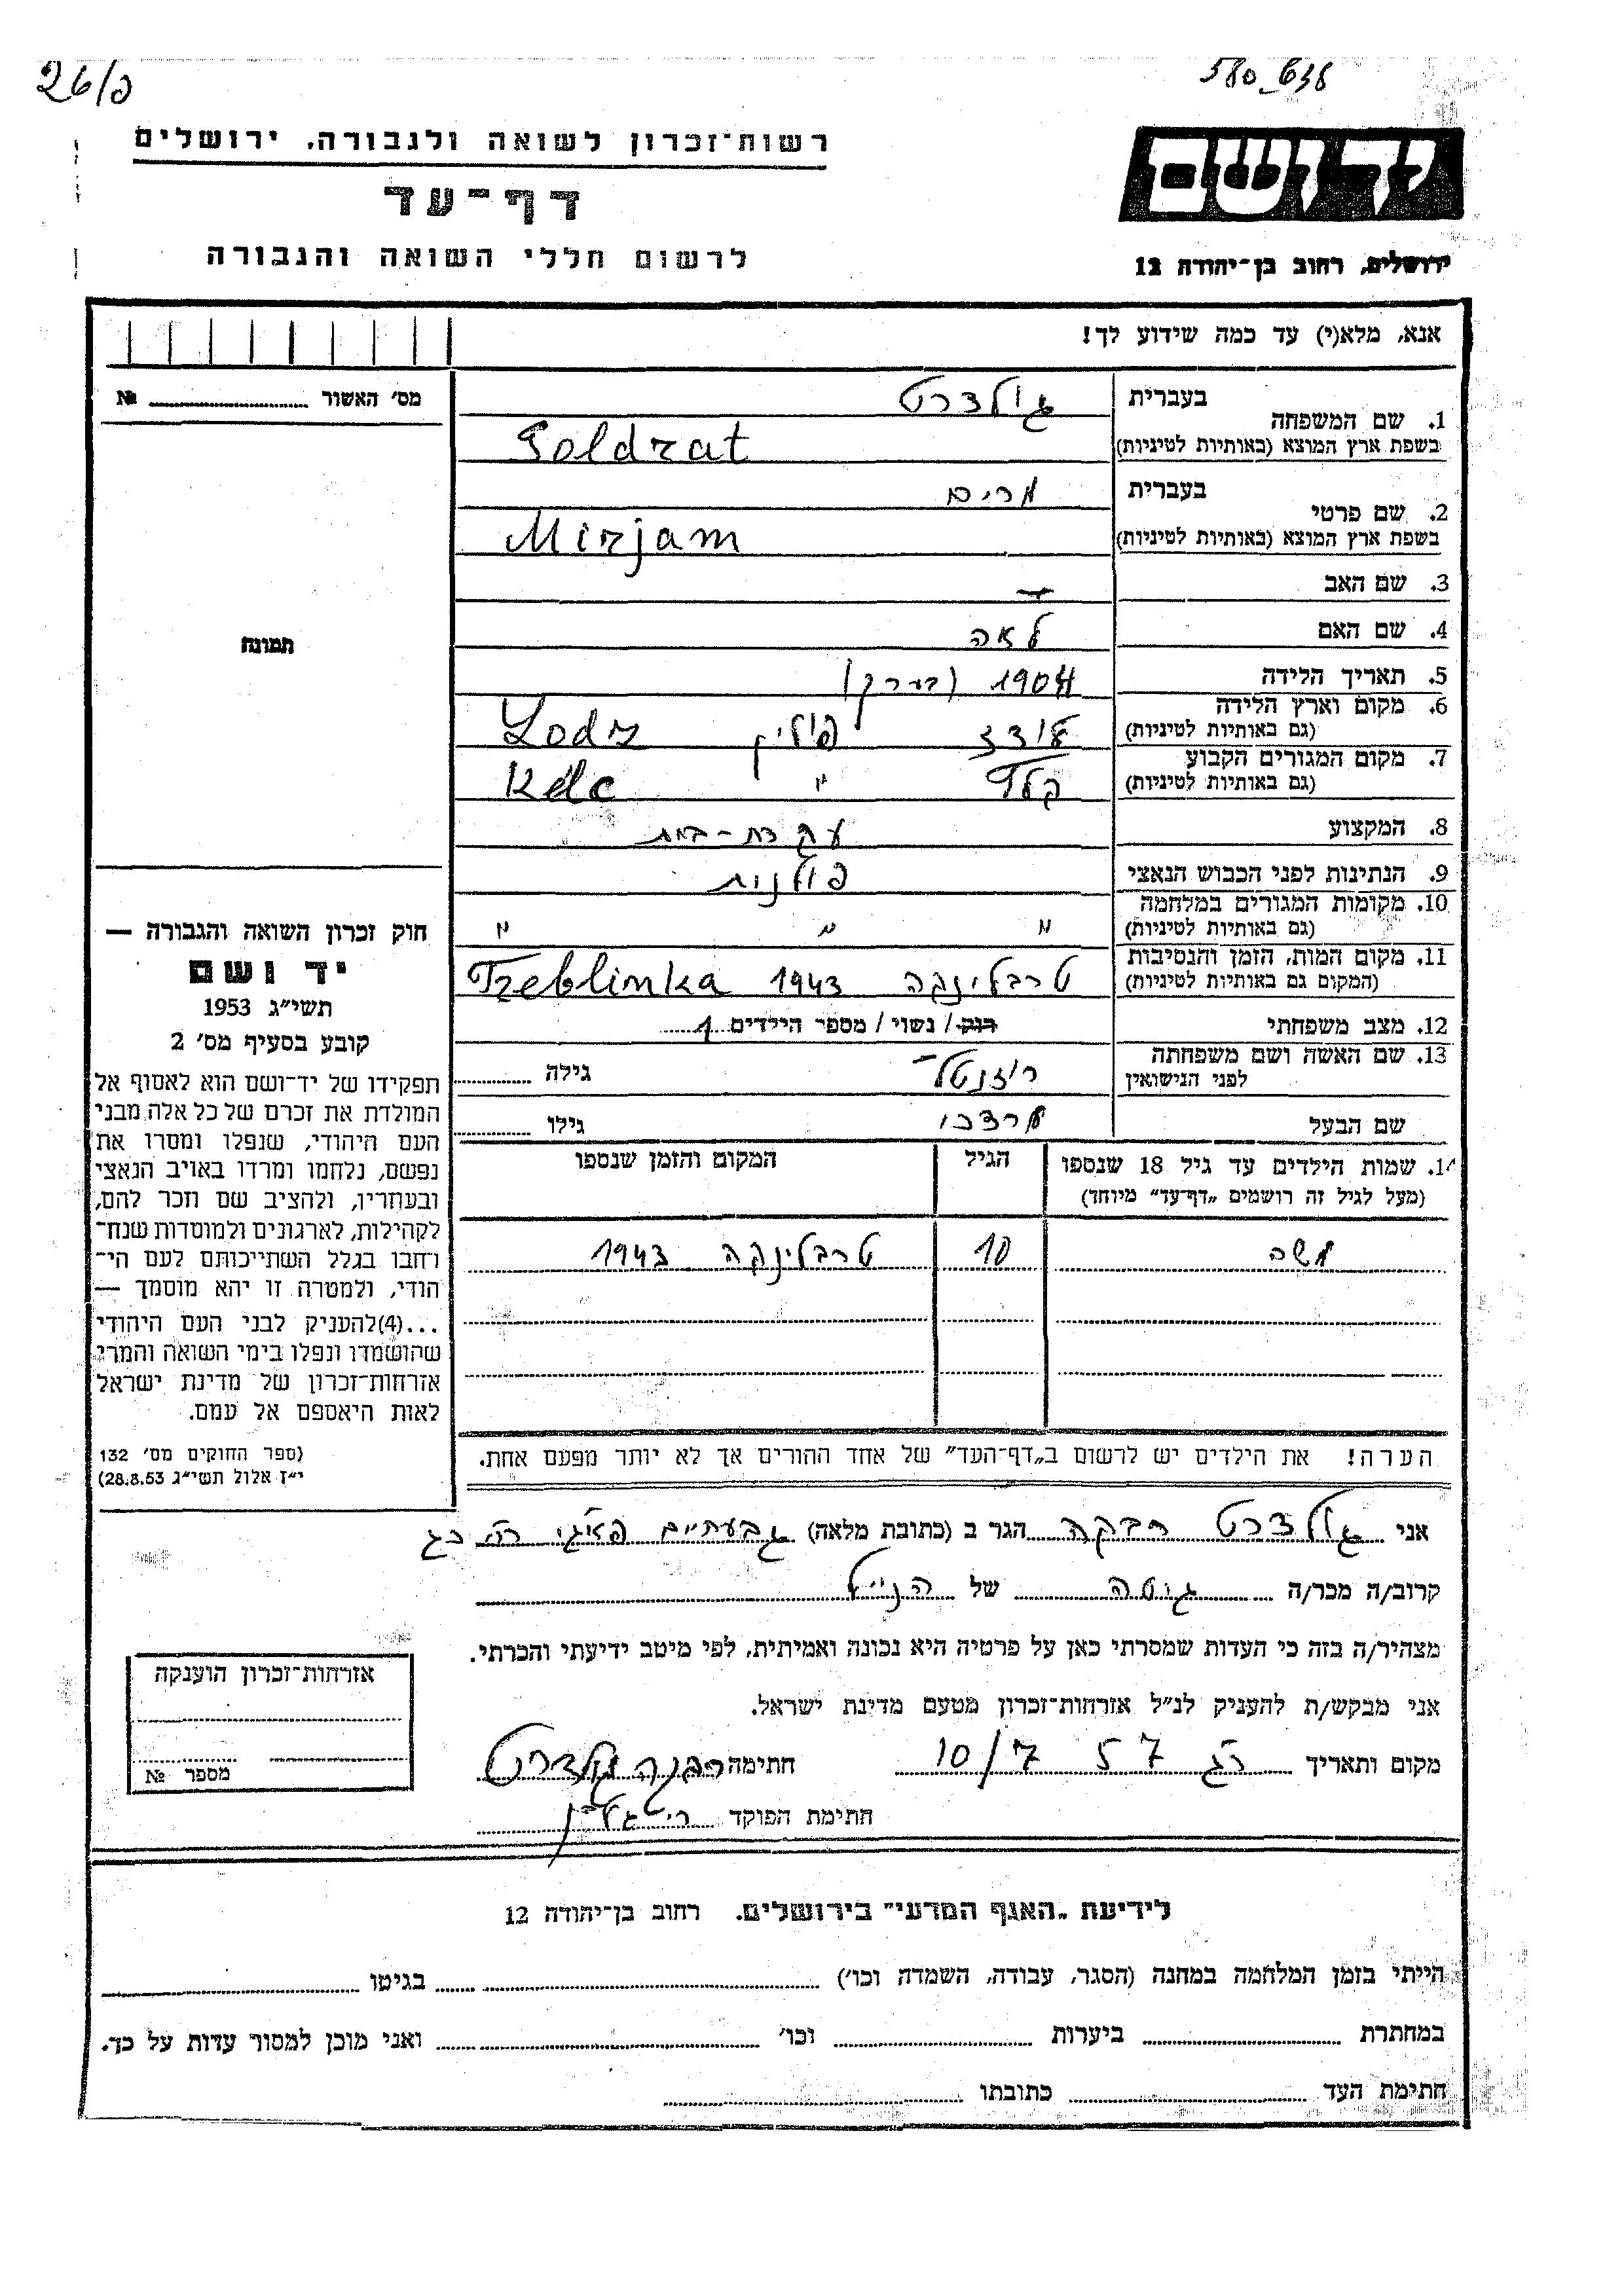 26/פ
580_638
רשות־זכרון לשואה ולגבורה. ירושלים
דף־עד
לרשום חללי השואה והגבורה
יד ושם
ירושלים, רחוב בן־יהודה 12
אנא, מלא(י) עד כמה שידוע לך!
מס׳ האשור № 
תמונה
חוק זכרון השואה והגבורה —
יד ושם
תשי״ג 1953
קובע בסעיף מס׳ 2
תפקידו של יד־ושם הוא לאסוף אל
המולדת את זכרם של כל אלה מבני
העם היהודי, שנפלו ומסרו את
נפשם, נלחמו ומרדו באויב הנאצי
ובעוזריו, ולהציב שם וזכר להם,
לקהילות, לארגונים ולמוסדות שנח־
רחבו בגלל השתייכותם לעם הי־
הודי, ולמטרה זו יהא מוסמך —
...(4)להעניק לבני העם היהודי
שהושמדו ונפלו בימי השואה והמרי
אזרחות־זכרון של מדינת ישראל
לאות היאספם אל עמם.
(ספר החוקים מס׳ 132
י״ז אלול תשי״ג 28.8.53)
1. שם המשפחה בעברית גולדרט
בשפת ארץ המוצא (באותיות לטיניות) Goldrat
2. שם פרטי בעברית מרים
בשפת ארץ המוצא (באותיות לטיניות) Mirjam
3. שם האב —
4. שם האם לאה
5. תאריך הלידה 1904 (בערך)
6. מקום וארץ הלידה לודז פולין Lodz
(גם באותיות לטיניות)
7. מקום המגורים הקבוע קלץ ״ Kelc
(גם באותיות לטיניות)
8. המקצוע עקרת-בית
9. הנתינות לפני הכבוש הנאצי פולנית
10. מקומות המגורים במלחמה ״ ״ ״
(גם באותיות לטיניות)
11. מקום המות, הזמן והנסיבות טרבלינקה 1943 Treblinka
(המקום גם באותיות לטיניות)
12. מצב משפחתי רוק / נשוי / מספר הילדים 1
13. שם האשה ושם משפחתה רוזנטל גילה
לפני הנישואין
שם הבעל מרדכי גילו
14. שמות הילדים עד גיל 18 שנספו הגיל המקום והזמן שנספו
(מעל לגיל זה רושמים „דף־עד״ מיוחד)
משה 10 טרבלינקה 1943
הערה! את הילדים יש לרשום ב„דף־העד״ של אחד ההורים אך לא יותר מפעם אחת.
אני גולדרט רבקה הגר ב (כתובת מלאה) גבעתיים
קרוב/ה מכר/ה גיסה של הנ״ל
מצהיר/ה בזה כי העדות שמסרתי כאן על פרטיה היא נכונה ואמיתית, לפי מיטב ידיעתי והכרתי.
אני מבקש/ת להעניק לנ״ל אזרחות־זכרון מטעם מדינת ישראל.
מקום ותאריך ר״ג 10/7 57 חתימה רבקה גולדרט
חתימת הפוקד
אזרחות־זכרון הוענקה
מספר №
לידיעת „האגף המדעי״ בירושלים. רחוב בן־יהודה 12
הייתי בזמן המלחמה במחנה (הסגר, עבודה, השמדה וכו׳) בגיטו
במחתרת ביערות וכו׳ ואני מוכן למסור עדות על כך.
חתימת העד כתובתו